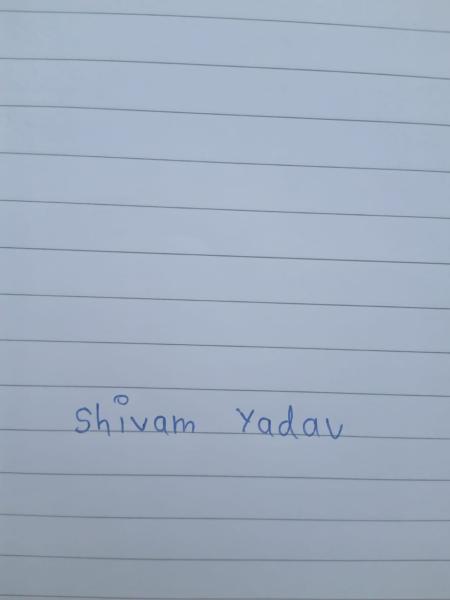 Shivam Yadav